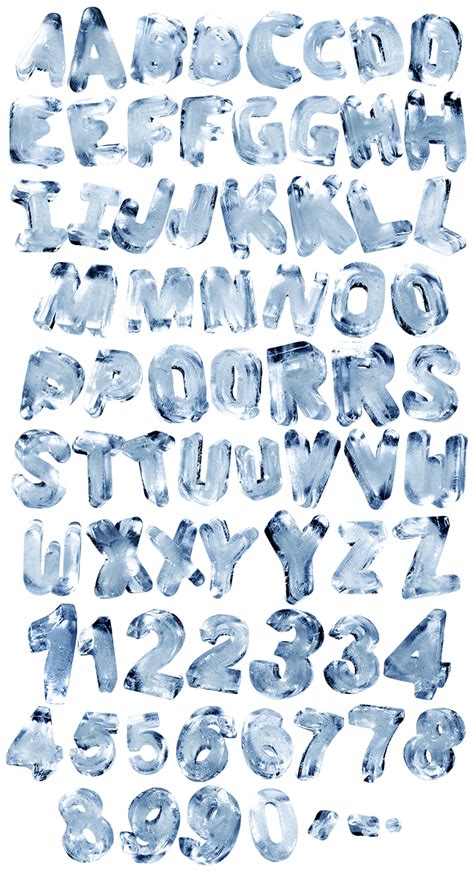 AABBCCDD
EEFFGGHH
IIJJKKLL
MMNNOO
PPQQRRS
STTUUVVW
WXXYYZZ
1122334
45566778
8990.--